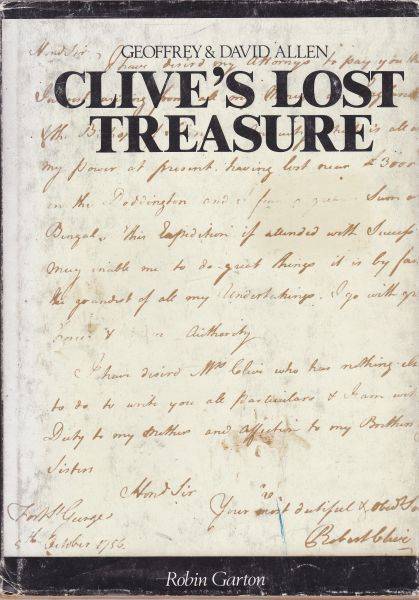 GEOFFREY & DAVID ALLEN
CLIVE'S LOST
TREASURE
Hond Sir
I have desird my Attorneys to pay you the
my power at present having lost near £3000
in the Doddington and I fear a great Sum
Bengal. this Expedition if attended with Success
may enable me to do great things it is by far
the grandest of all my Undertakings. I go with
Authority
I have desird Mrs Clive who has nothing
to do to write you all particulars & I am with
Duty to my Mother and affection to my Brothers
Sisters
Hond Sir
Your most dutiful &
Fort St George
5th October 1756
Robert Clive
Robin Garton